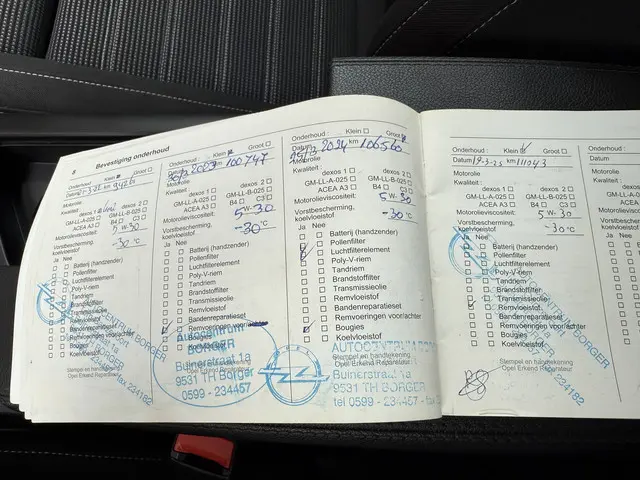 8 Bevestiging onderhoud
Onderhoud: Klein Groot
Datum km
Motorolie
Kwaliteit: dexos 1 dexos 2
GM-LL-A-025 GM-LL-B-025
ACEA A3 B4 C3
Motorolieviscositeit: 5 W- 30
Vorstbescherming,
koelvloeistof -30°C
Ja Nee
Batterij (handzender)
Pollenfilter
Luchtfilterelement
Poly-V-riem
Tandriem
Brandstoffilter
Transmissieolie
Remvloeistof
Bandenreparatieset
Remvoeringen voor/achter
Bougies
Koelvloeistof
Stempel en handtekening
Opel Erkend Reparateur
Onderhoud: Klein Groot
2023 km 100747
Motorolie
Kwaliteit: dexos 1 dexos 2
GM-LL-A-025 GM-LL-B-025
ACEA A3 B4 C3
Motorolieviscositeit: 5 W- 30
Vorstbescherming,
koelvloeistof -30°C
Ja Nee
Batterij (handzender)
Pollenfilter
Luchtfilterelement
Poly-V-riem
Tandriem
Brandstoffilter
Transmissieolie
Remvloeistof
Bandenreparatieset
Remvoeringen voor/achter
Bougies
AUTOCENTRUM
BORGER
Buinerstraat 1a
9531 TH Borger
0599 - 234457
Onderhoud: Klein Groot
Datum 2024 km 106560
Motorolie
Kwaliteit: dexos 1 dexos 2
GM-LL-A-025 GM-LL-B-025
ACEA A3 B4 C3
Motorolieviscositeit: 5 W- 30
Vorstbescherming,
koelvloeistof -30°C
Ja Nee
Batterij (handzender)
Pollenfilter
Luchtfilterelement
Poly-V-riem
Tandriem
Brandstoffilter
Transmissieolie
Remvloeistof
Bandenreparatieset
Remvoeringen voor/achter
Bougies
Koelvloeistof
AUTOCENTRUM
Stempel en handtekening
Opel Erkend Reparateur
Buinerstraat 1a
9531 TH BORGER
tel 0599 - 234
Onderhoud: Klein Groot
Datum 19-3-25 km 111043
Motorolie
Kwaliteit: dexos 1 dexos 2
GM-LL-A-025 GM-LL-B-025
ACEA A3 B4 C3
Motorolieviscositeit: 5 W- 30
Vorstbescherming,
koelvloeistof -30°C
Ja Nee
Batterij (handzender)
Pollenfilter
Luchtfilterelement
Poly-V-riem
Tandriem
Brandstoffilter
Transmissieolie
Remvloeistof
Bandenreparatieset
Remvoeringen voor/achter
Bougies
Koelvloeistof
Stempel en handtekening
Opel Erkend Reparateur
Onderhoud
Datum
Motorolie
Kwaliteit: